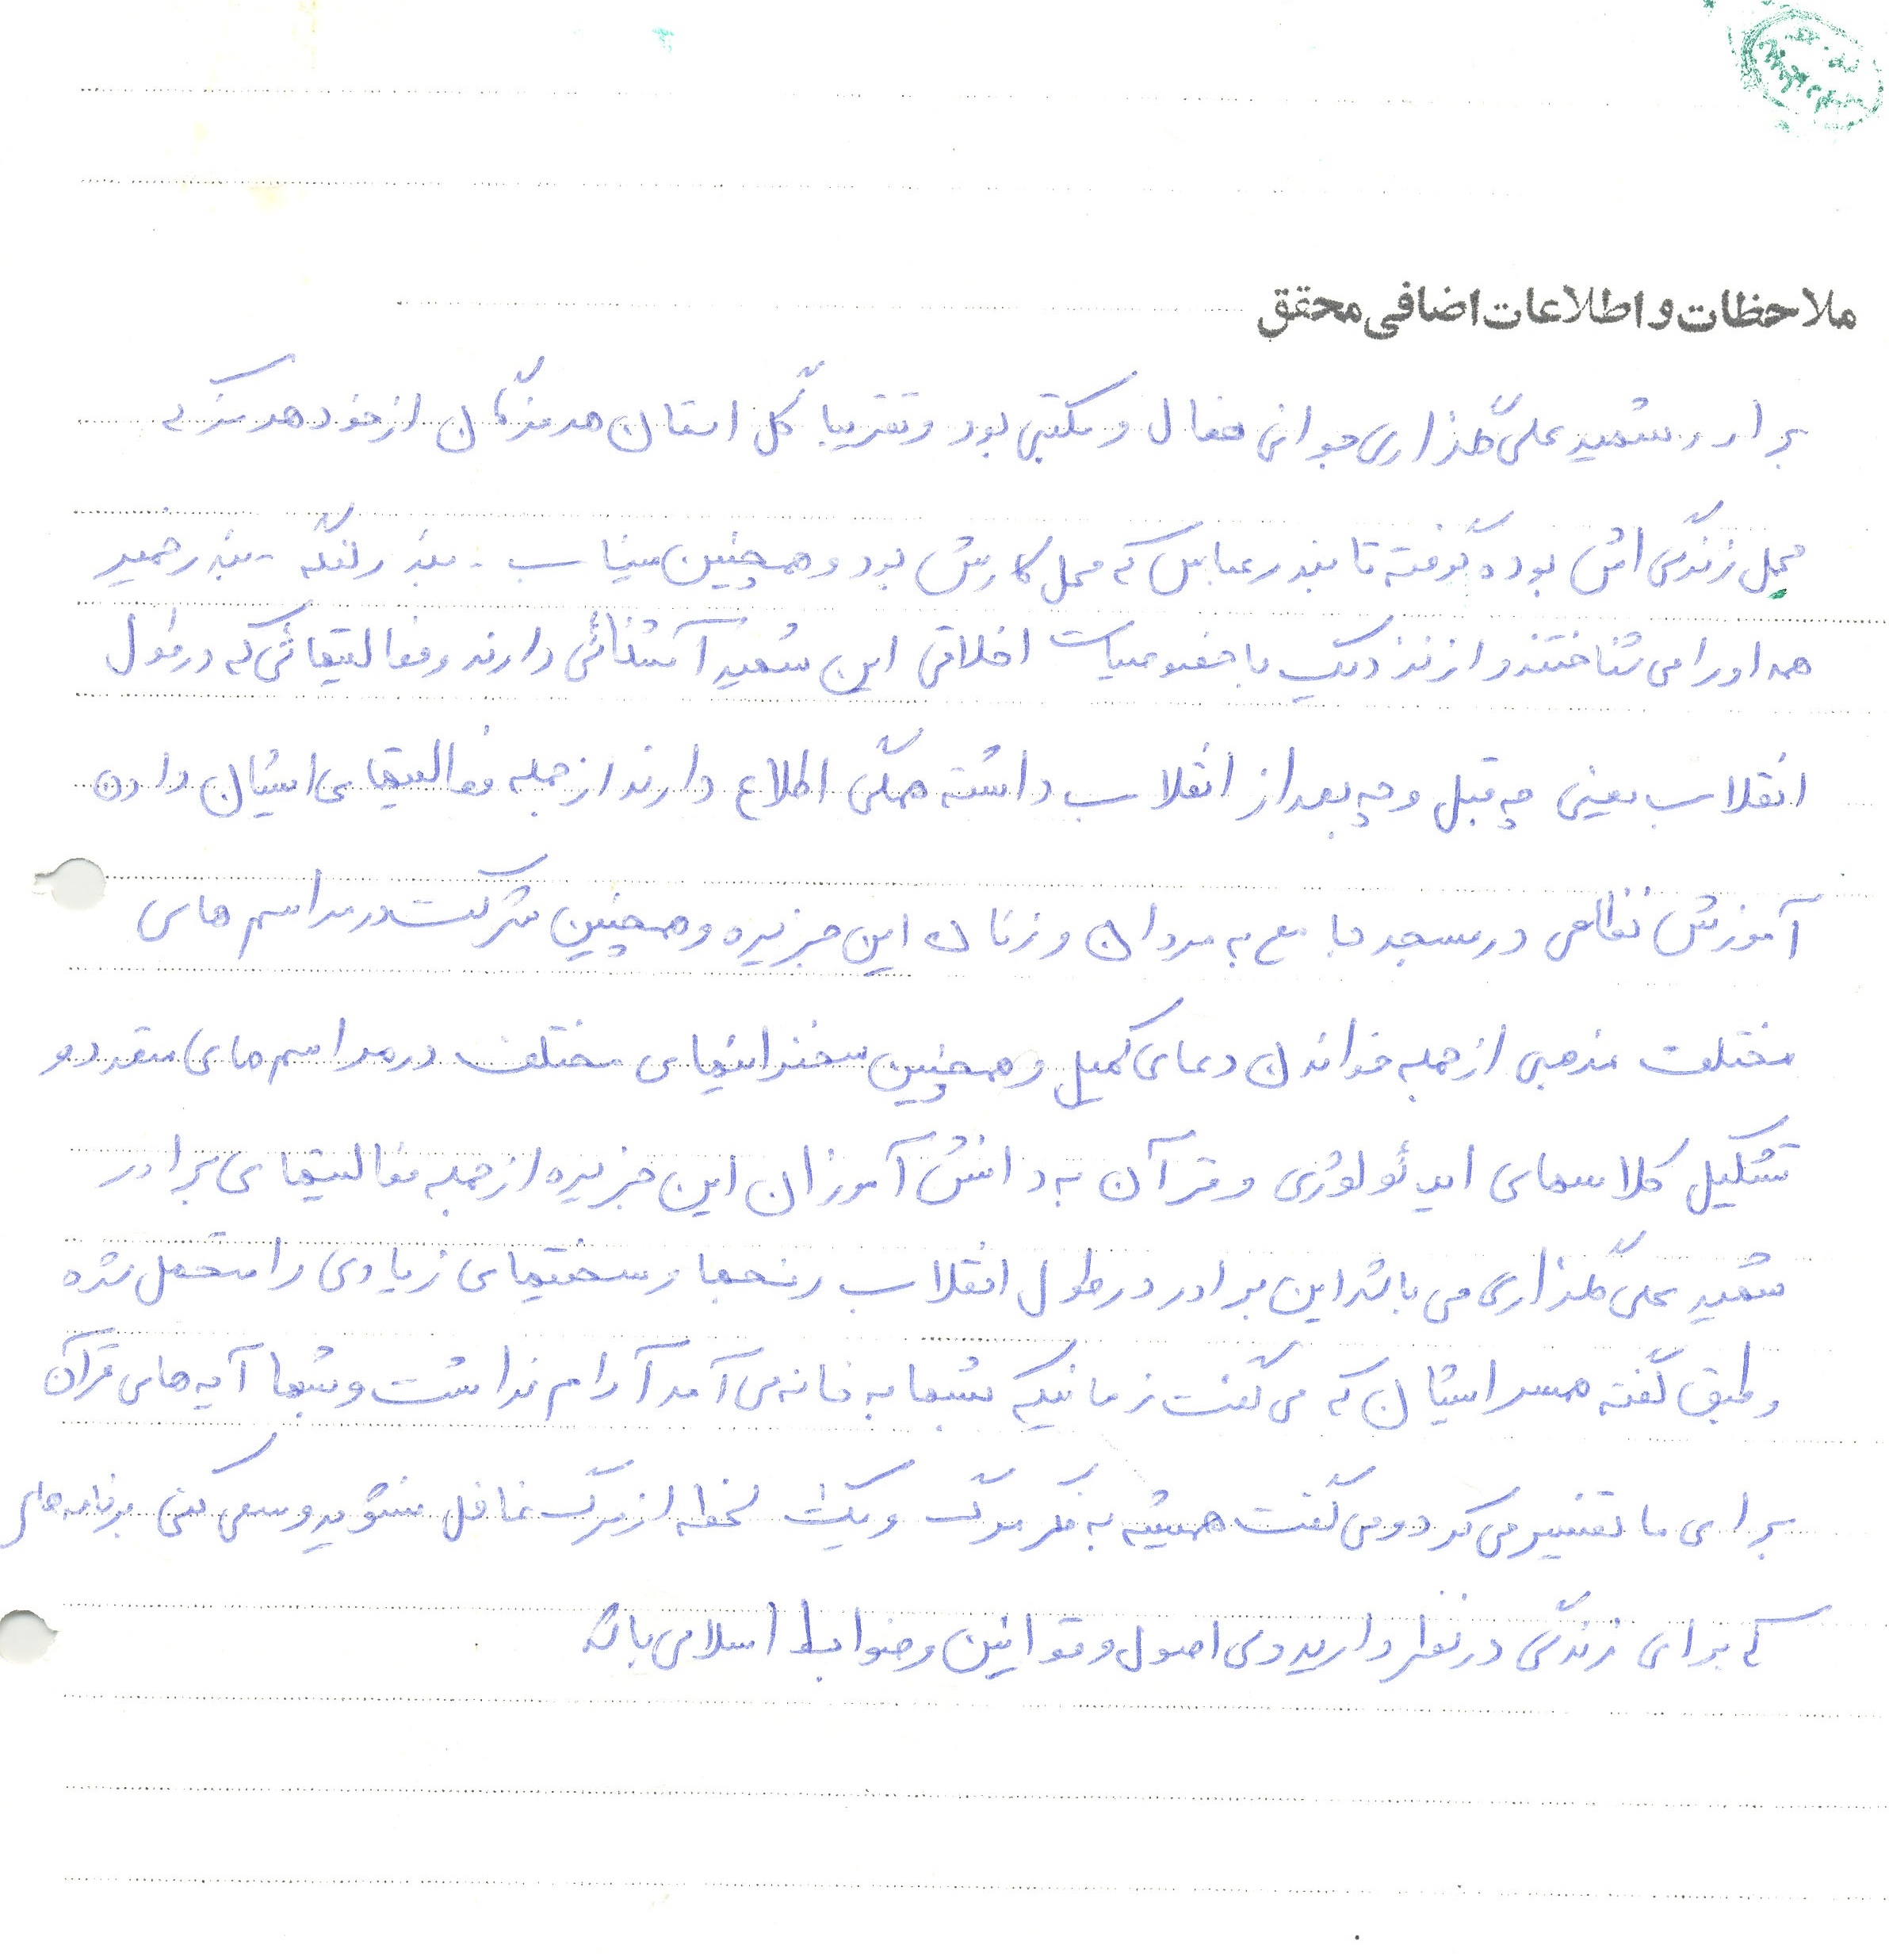 ملاحظات و اطلاعات اضافی محقق
برادر شهید علی گلزاری جوانی فعال و مکتبی بود و تقریبا کل استان هرمزگان از خود هرمز که
محل زندگی اش بوده گرفته تا بندرعباس که محل کارش بود و همچنین میناب - بندر لنگه - بندر خمیر
همه او را می شناختند و از نزدیک با خصوصیات اخلاقی این شهید آشنائی دارند و فعالیتهائی که در طول
انقلاب یعنی چه قبل و چه بعد از انقلاب داشته همگی اطلاع دارند از جمله فعالیتهای ایشان دادن
آموزش نظامی در مسجد جامع به مردان و زنان این جزیره و همچنین شرکت در مراسم های
مختلف مذهبی از جمله خواندن دعای کمیل و همچنین سخنرانیهای مختلف در مراسم های متعدد و
تشکیل کلاسهای ایدئولوژی و قرآن به دانش آموزان این جزیره از جمله فعالیتهای برادر
شهید علی گلزاری می باشد این برادر در طول انقلاب رنجها و سختیهای زیادی را متحمل شده
و طبق گفته همسر ایشان که می گفت زمانیکه شبها به خانه می آمد آرام نداشت و شبها آیه های قرآن
برای ما تفسیر می کرد و می گفت همیشه به فکر مرگ و یک لحظه از مرگ غافل نشوید و سعی کنی برنامه های
که برای زندگی در نظر دارید روی اصول و قوانین و ضوابط اسلامی باشد